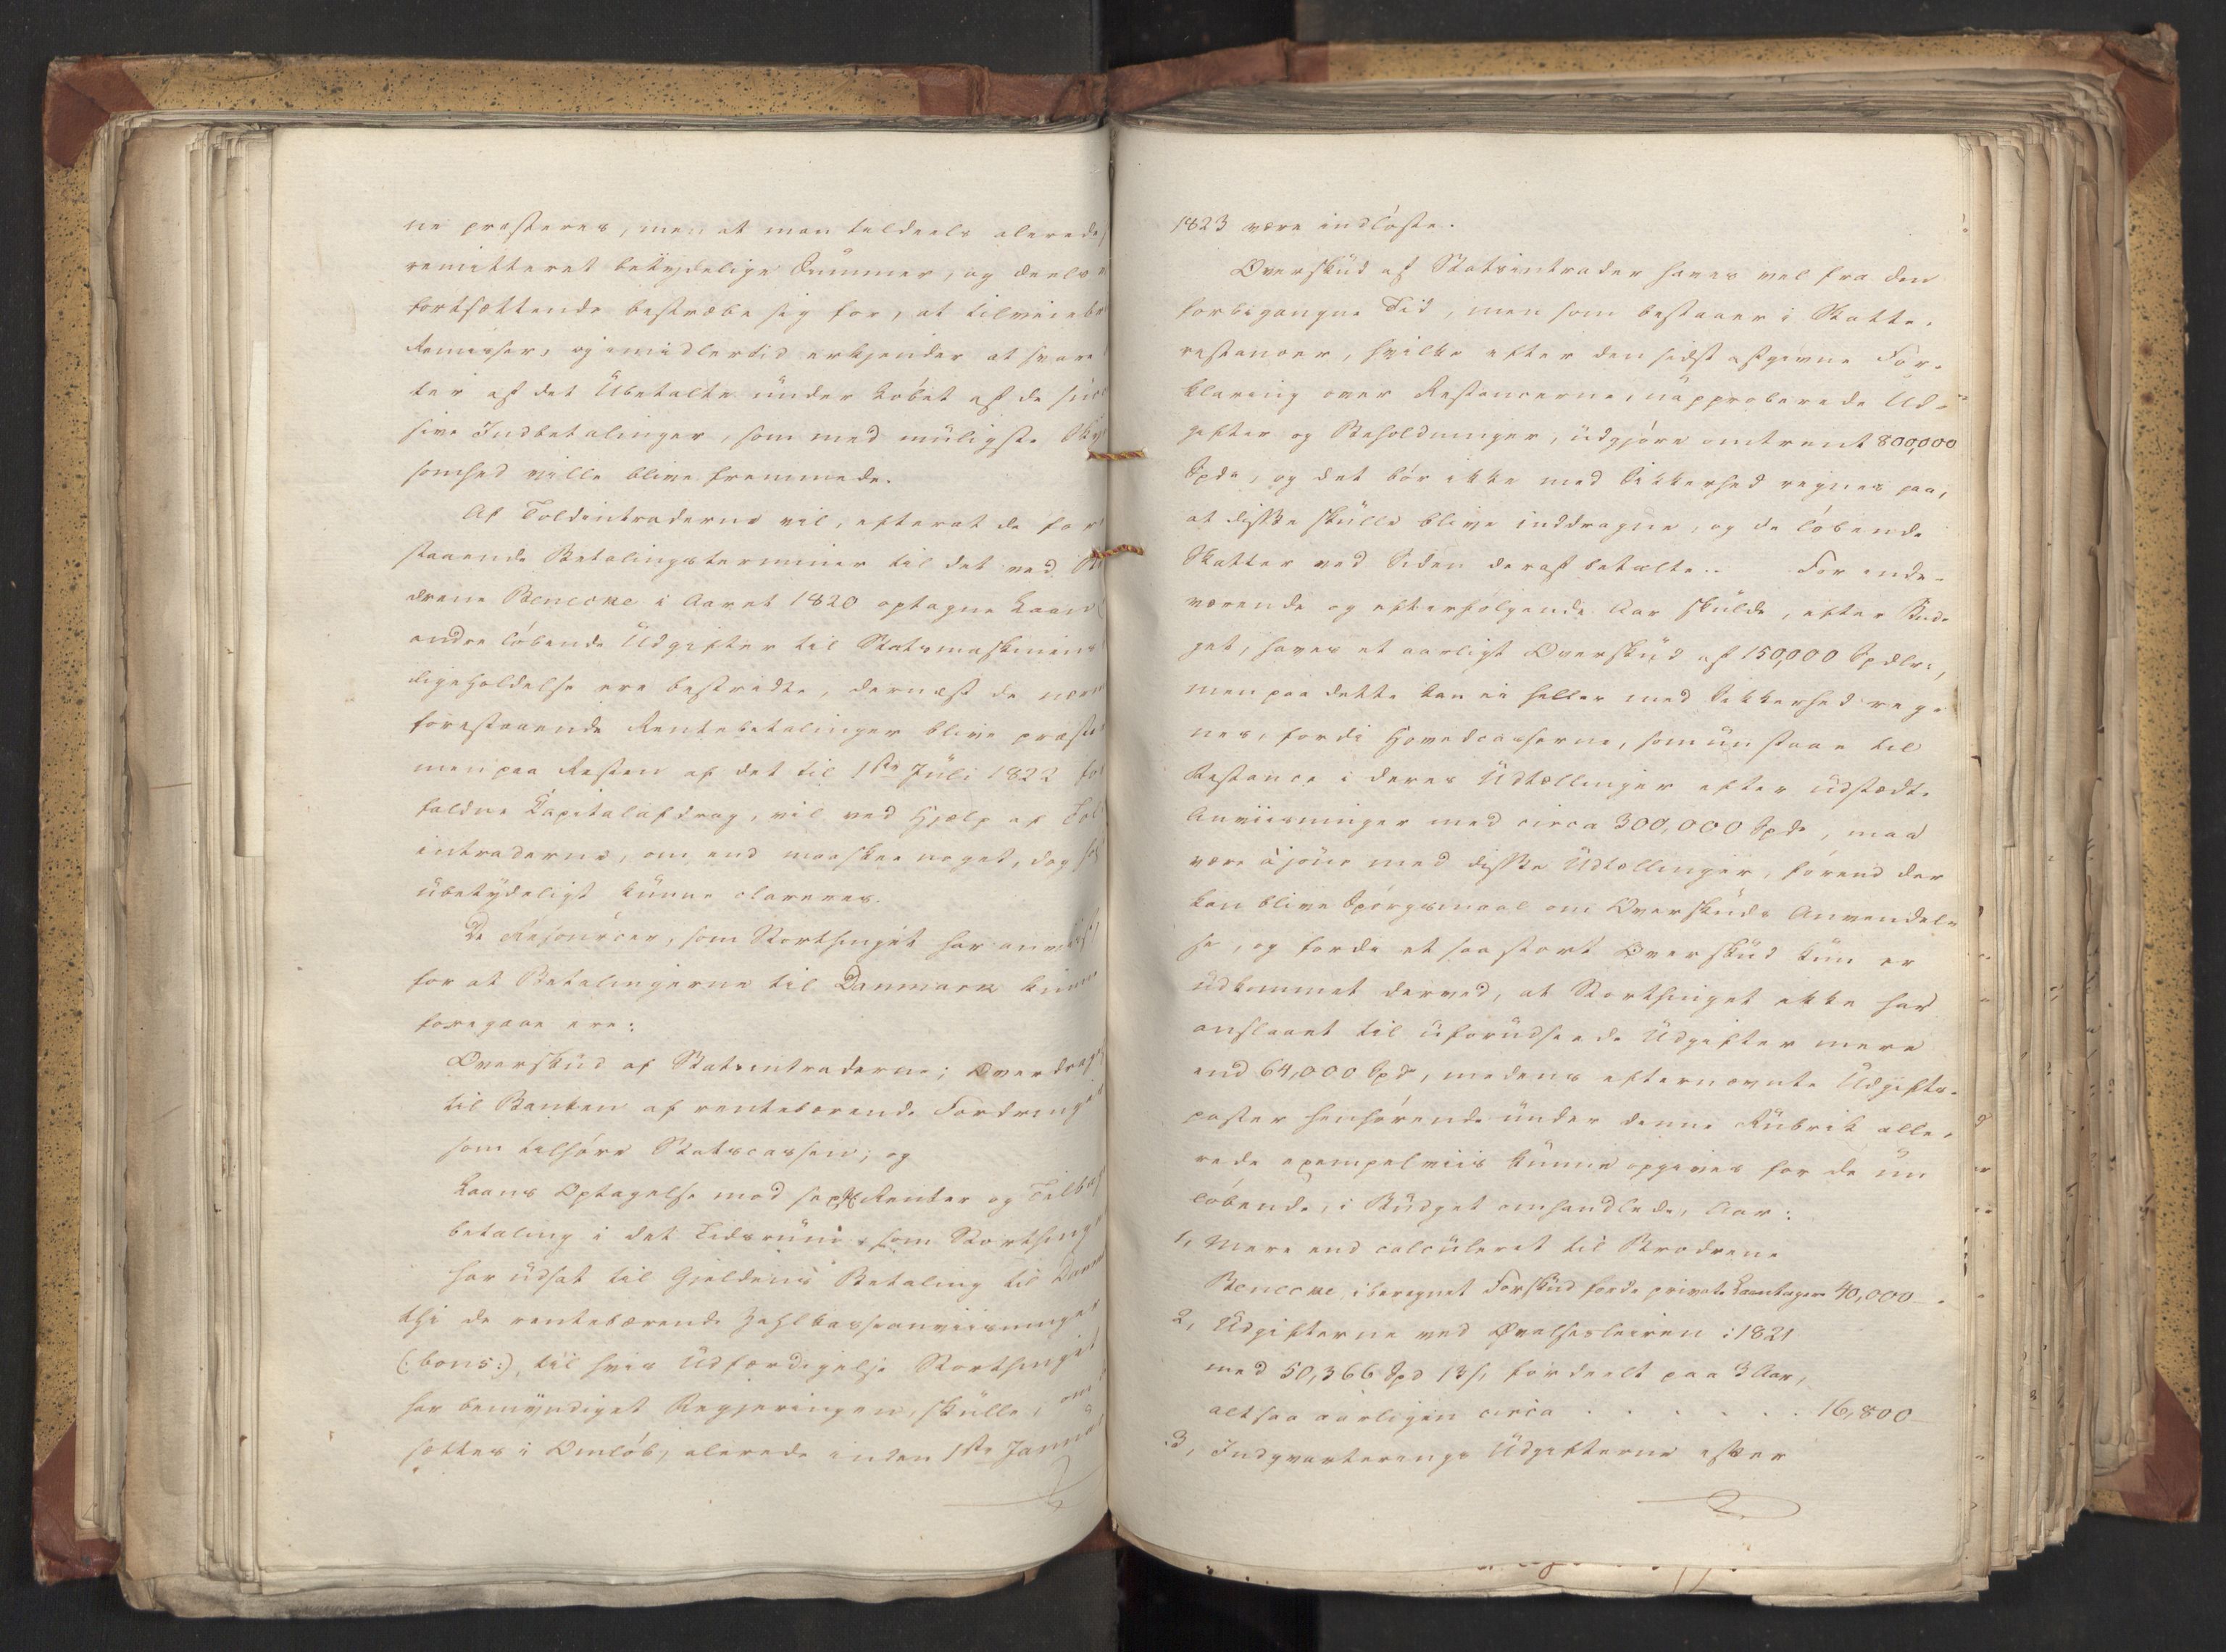 ne præsteres, men at man tildeels alerede
remitteret betydelige Summer, og deels
fortsættende bestræbe sig for, at tilveiebr
Remisser, og imidlertid erkjender at svare
ter af det Ubetalte under Løbet af de suc
sive Indbetalinger, som med muligste Sky
somhed ville blive fremmede.
Af Toldintraderne vil, efterat de for
staaende Betalingsterminer til det ved Br
drene Benecke i Aaret 1820 optagne Laan
andre løbende Udgifter til Statsmaskinens
ligeholdelse ere bestridte, dernæst de nær
forestaaende Rentebetalinger blive præste
men paa Resten af det til 1ste Juli 1822 for
faldne Kapitalafdrag, vil ved Hjælp af Tol
intraderne, om end maaskee noget, dog
ubetydeligt kunne clareres.
De Resourcer, som Storthinget har anviist
for at Betalingerne til Danmark kunne
foregaae ere:
Overskud af Statsintraderne; Overdrag
til Banken af rentebærende Fordring
som tilhøre Statscassen; og
Laans Optagelse mod Renter og Tilba
betaling i det Tidsrum, som Storthing
har udsat til Gjeldens Betaling til Danm
thi de rentebærende Zahlkasseanviisninger
(: bons:), til hvis Udfærdigelse Storthinget
har bemyndiget Regjeringen, skulle, om
sættes i Omløb, alerede inden 1ste Janua
1823 være indløste.
Overskud af Statsintrader haves vel fra den
forbigangne Tid, men som bestaaer i Skatte-
restancer, hvilke efter den sidst afgivne For-
klaring over Restancerne, uapproberede Ud-
gifter og Beholdninger, udgjøre omtrent 800,000
Spd, og det bør ikke med Sikkerhed regnes paa,
at disse skulle blive inddragne, og de løbende
Skatter ved Siden deraf betalte. For inde-
værende og efterfølgende Aar skulde, efter Bud-
get, haves et aarligt Overskud af 150,000 Spdlr:,
men paa dette kan ei heller med Sikkerhed reg-
nes, fordi Hovedcasserne, som nu staae til
Restance i deres Udtællinger efter udstædte
Anviisninger med circa 300,000 Spd, maa
være àjour med disse Udtællinger, førend der
kan blive Spørgsmaal om Overskuds Anvendel-
se, og fordi et saa stort Overskud kun er
udkommet derved, at Storthinget ikke har
anslaaet til uforudseede Udgifter mere
end 64,000 Spd, medens efternævnte Udgifts-
poster henhørende under denne Rubrik alle-
rede exempelviis kunne opgives for de nu
løbende, i Budget omhandlede, Aar:
1, Mere end calculeret til Brødrene
Benecke, iberegnet Forskud for de private Laantagere 40,000
2, Udgifterne ved Øvelsesleiren i 1821
med 50,366 Spd 13 s, fordeelt paa 3 Aar,
altsaa aarligen circa . . . . . . 16,800
3, Indqvarterings Udgifterne efter